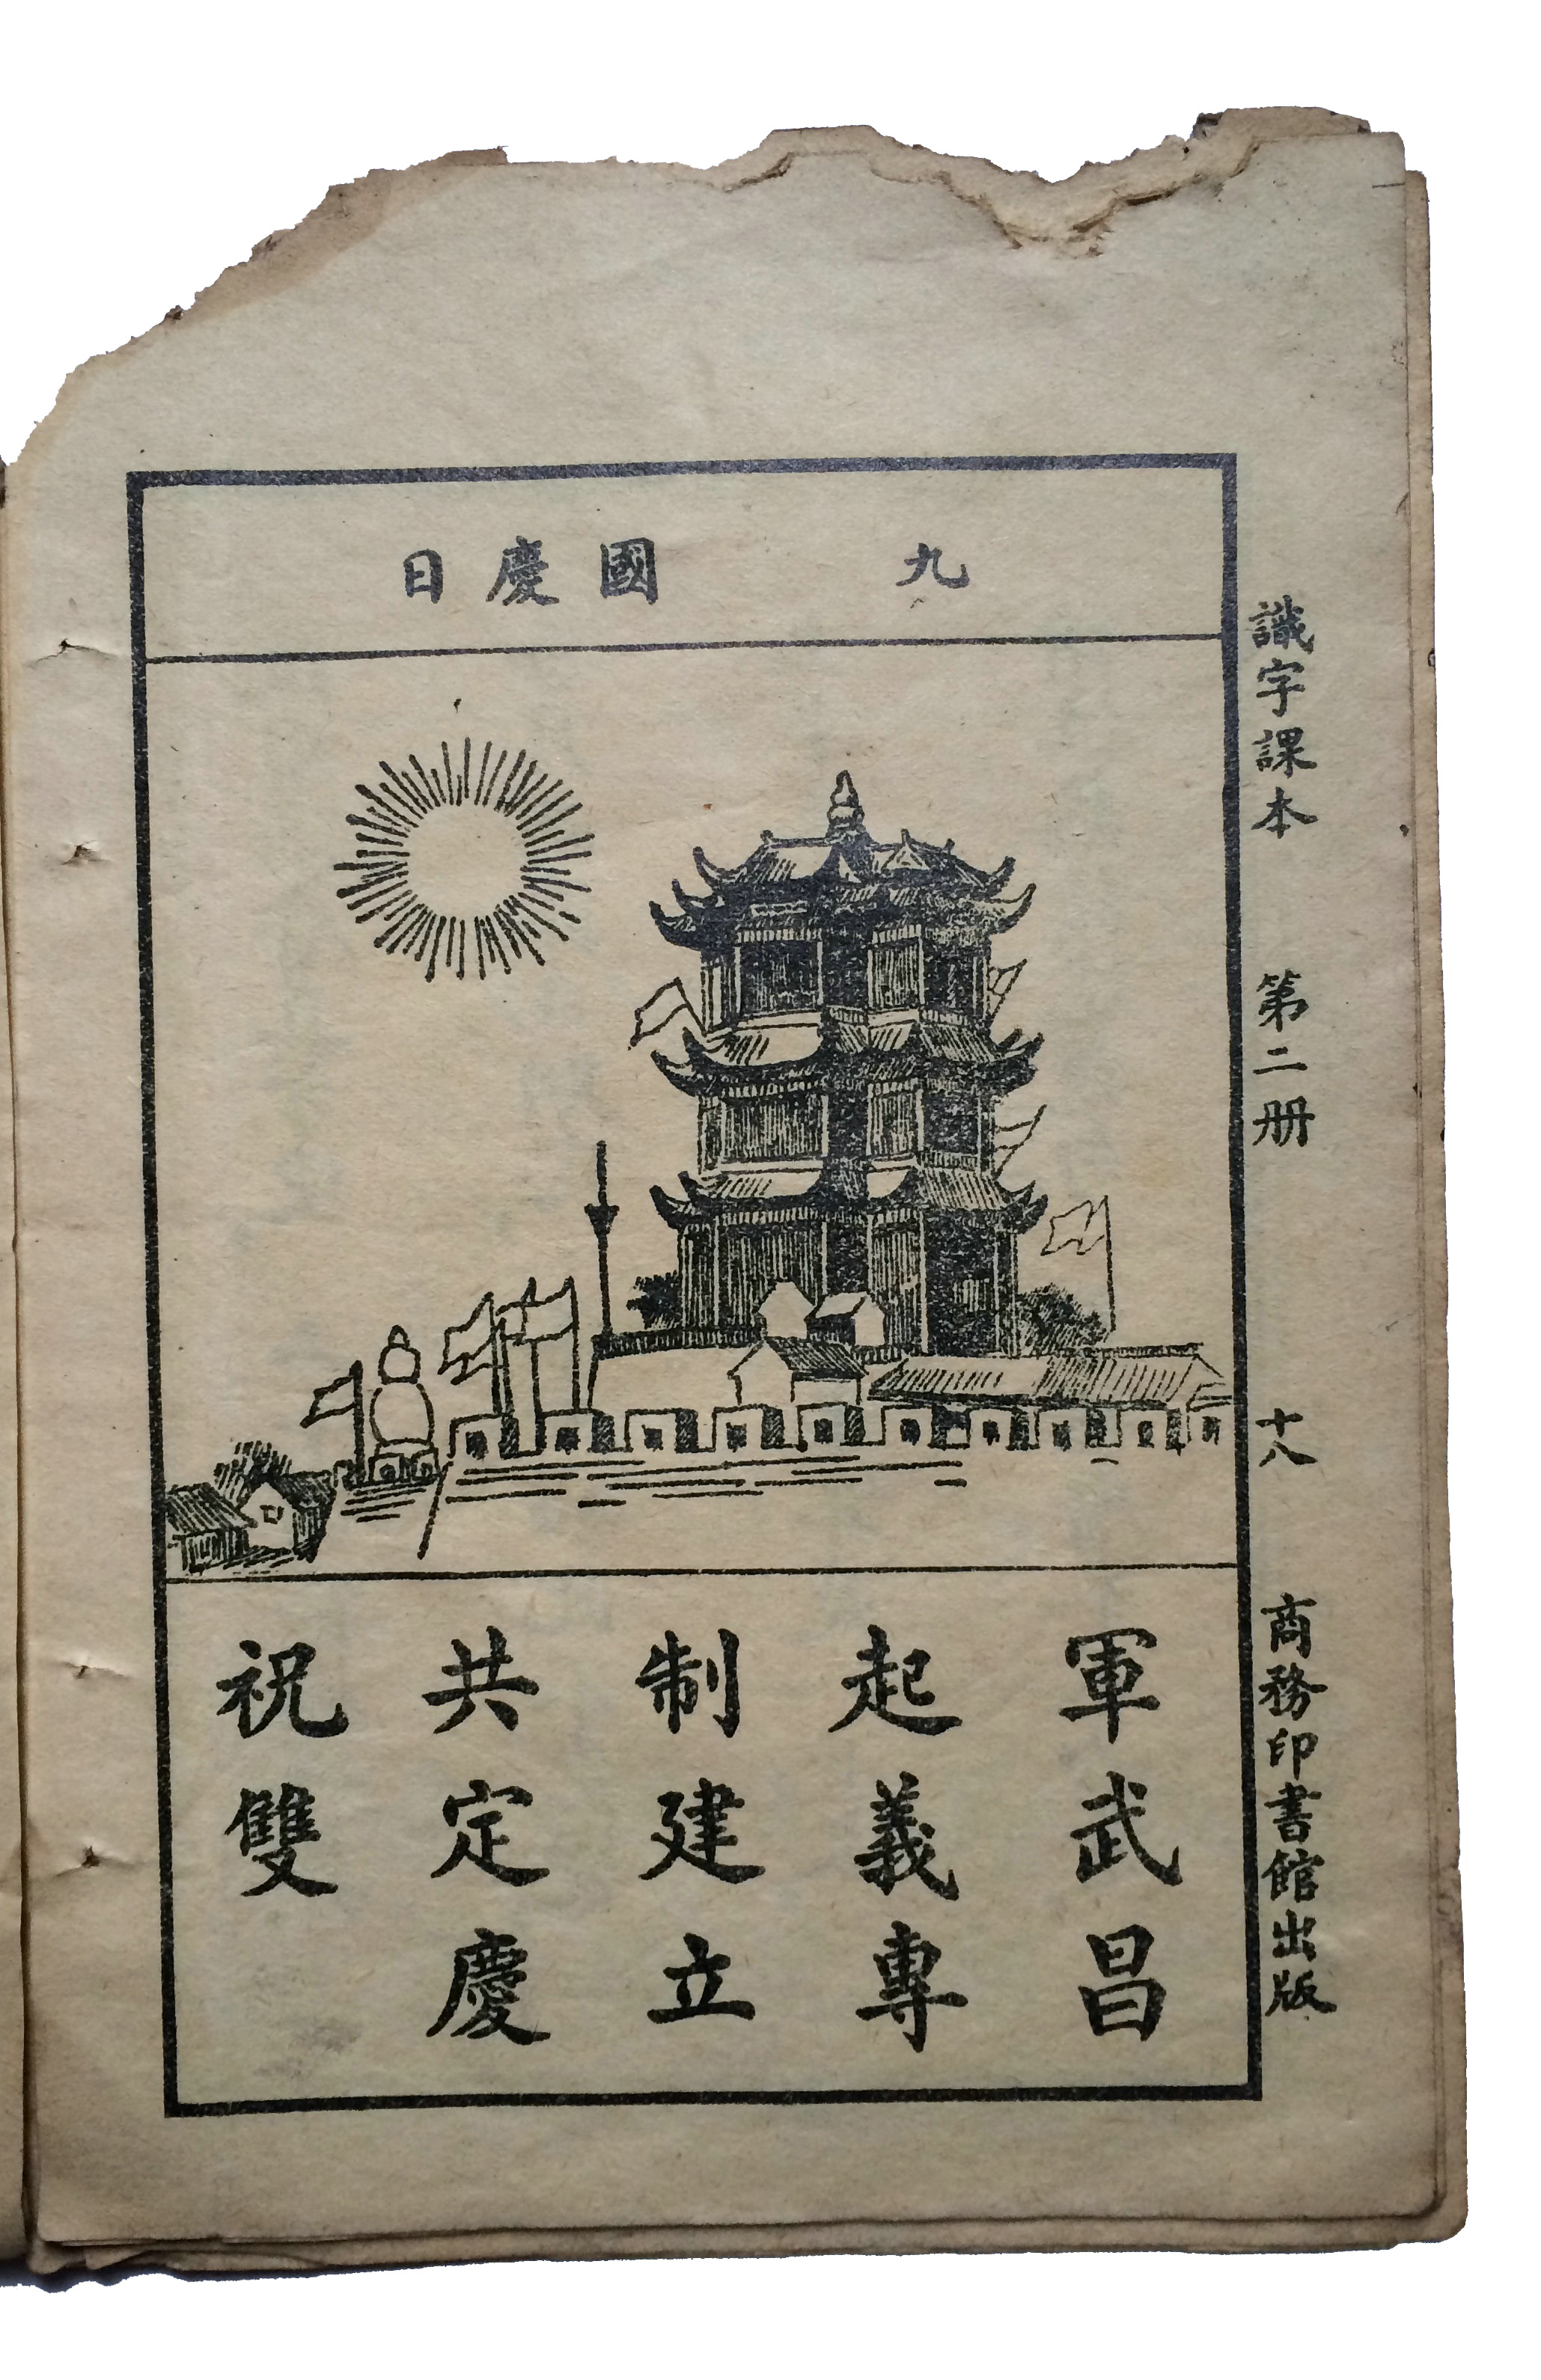 識字課本 第二册 十八 商務印書館出版
九 國慶日
軍武昌
起義專
制建立
共定慶
祝雙